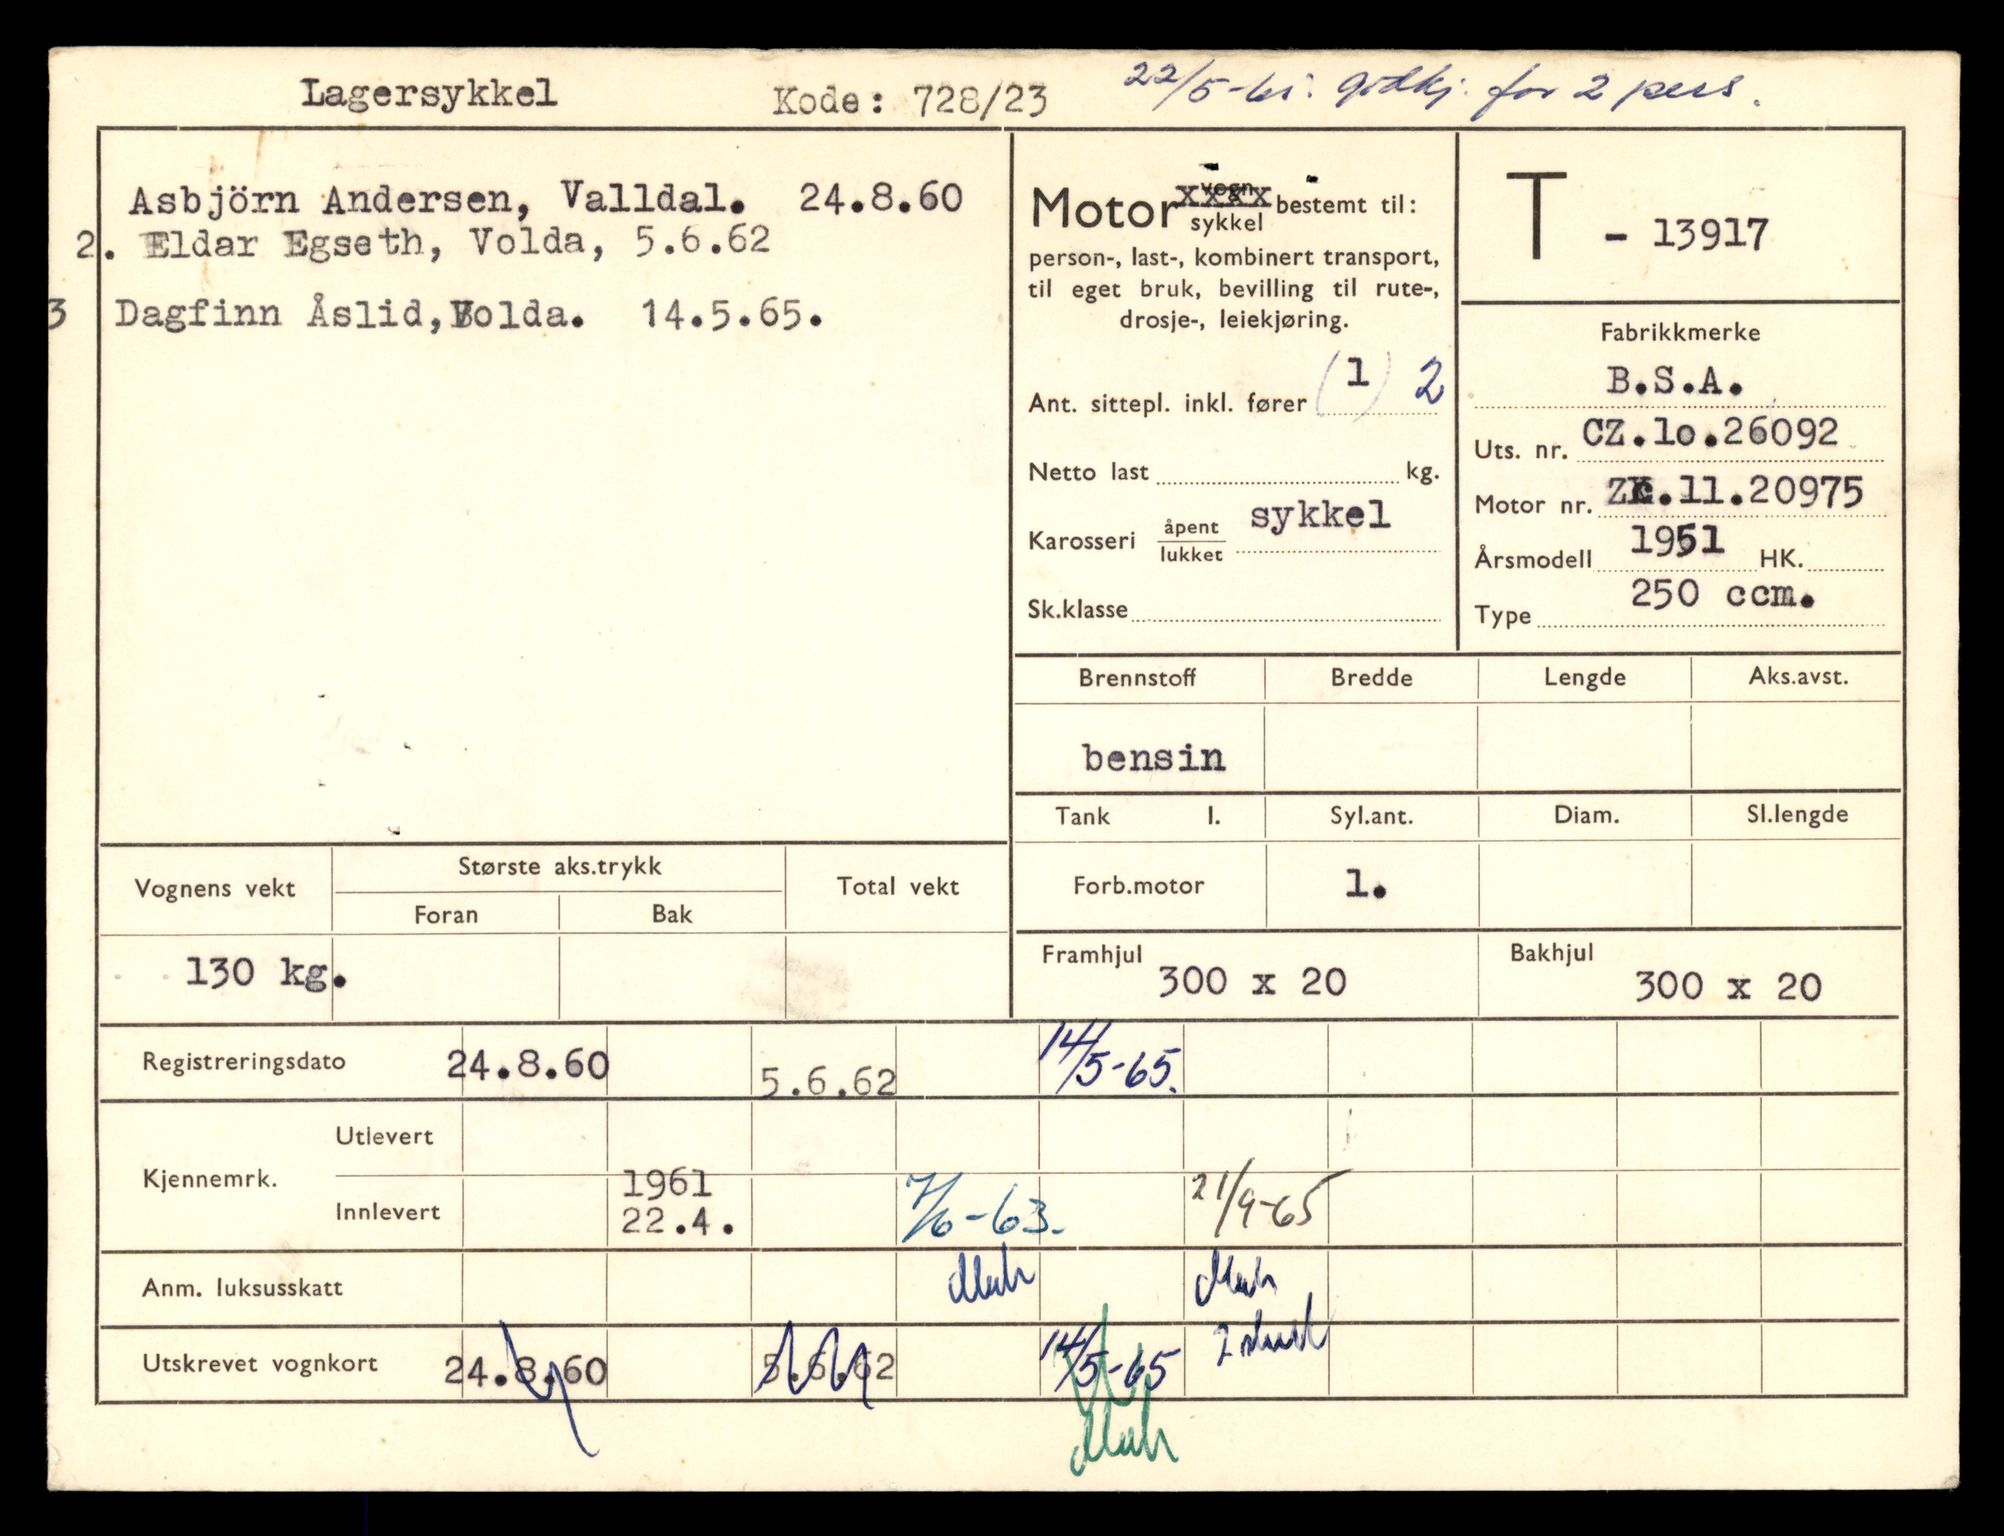 Lagersykkel Kode: 728/23 22/5-61. godkj. for 2 pers.
Asbjörn Andersen, Valldal. 24.8.60
2. Eldar Egseth, Volda, 5.6.62
3 Dagfinn Åslid, Volda. 14.5.65.
Motor vogn xxxx
sykkel bestemt til:
person-, last-, kombinert transport,
til eget bruk, bevilling til rute-,
drosje-, leiekjøring.
Ant. sittepl. inkl. fører (1) 2
Netto last kg.
Karosseri åpent
lukket sykkel
Sk.klasse
T - 13917
Fabrikkmerke
B.S.A.
Uts. nr. CZ.lo.26092
Motor nr. Zc.11.20975
Årsmodell 1951 HK.
Type 250 ccm.
Brennstoff Bredde Lengde Aks.avst.
bensin
Tank l. Syl.ant. Diam. Sl.lengde
Forb.motor 1.
Framhjul 300 x 20 Bakhjul 300 x 20
Vognens vekt Største aks.trykk Total vekt
Foran Bak
130 kg.
Registreringsdato 24.8.60 5.6.62 14/5-65.
Kjennemrk.
Utlevert
Innlevert 1961
22.4. 7/6-63. 21/9-65
Anm. luksusskatt
Utskrevet vognkort 24.8.60 5.6.62 14/5-65